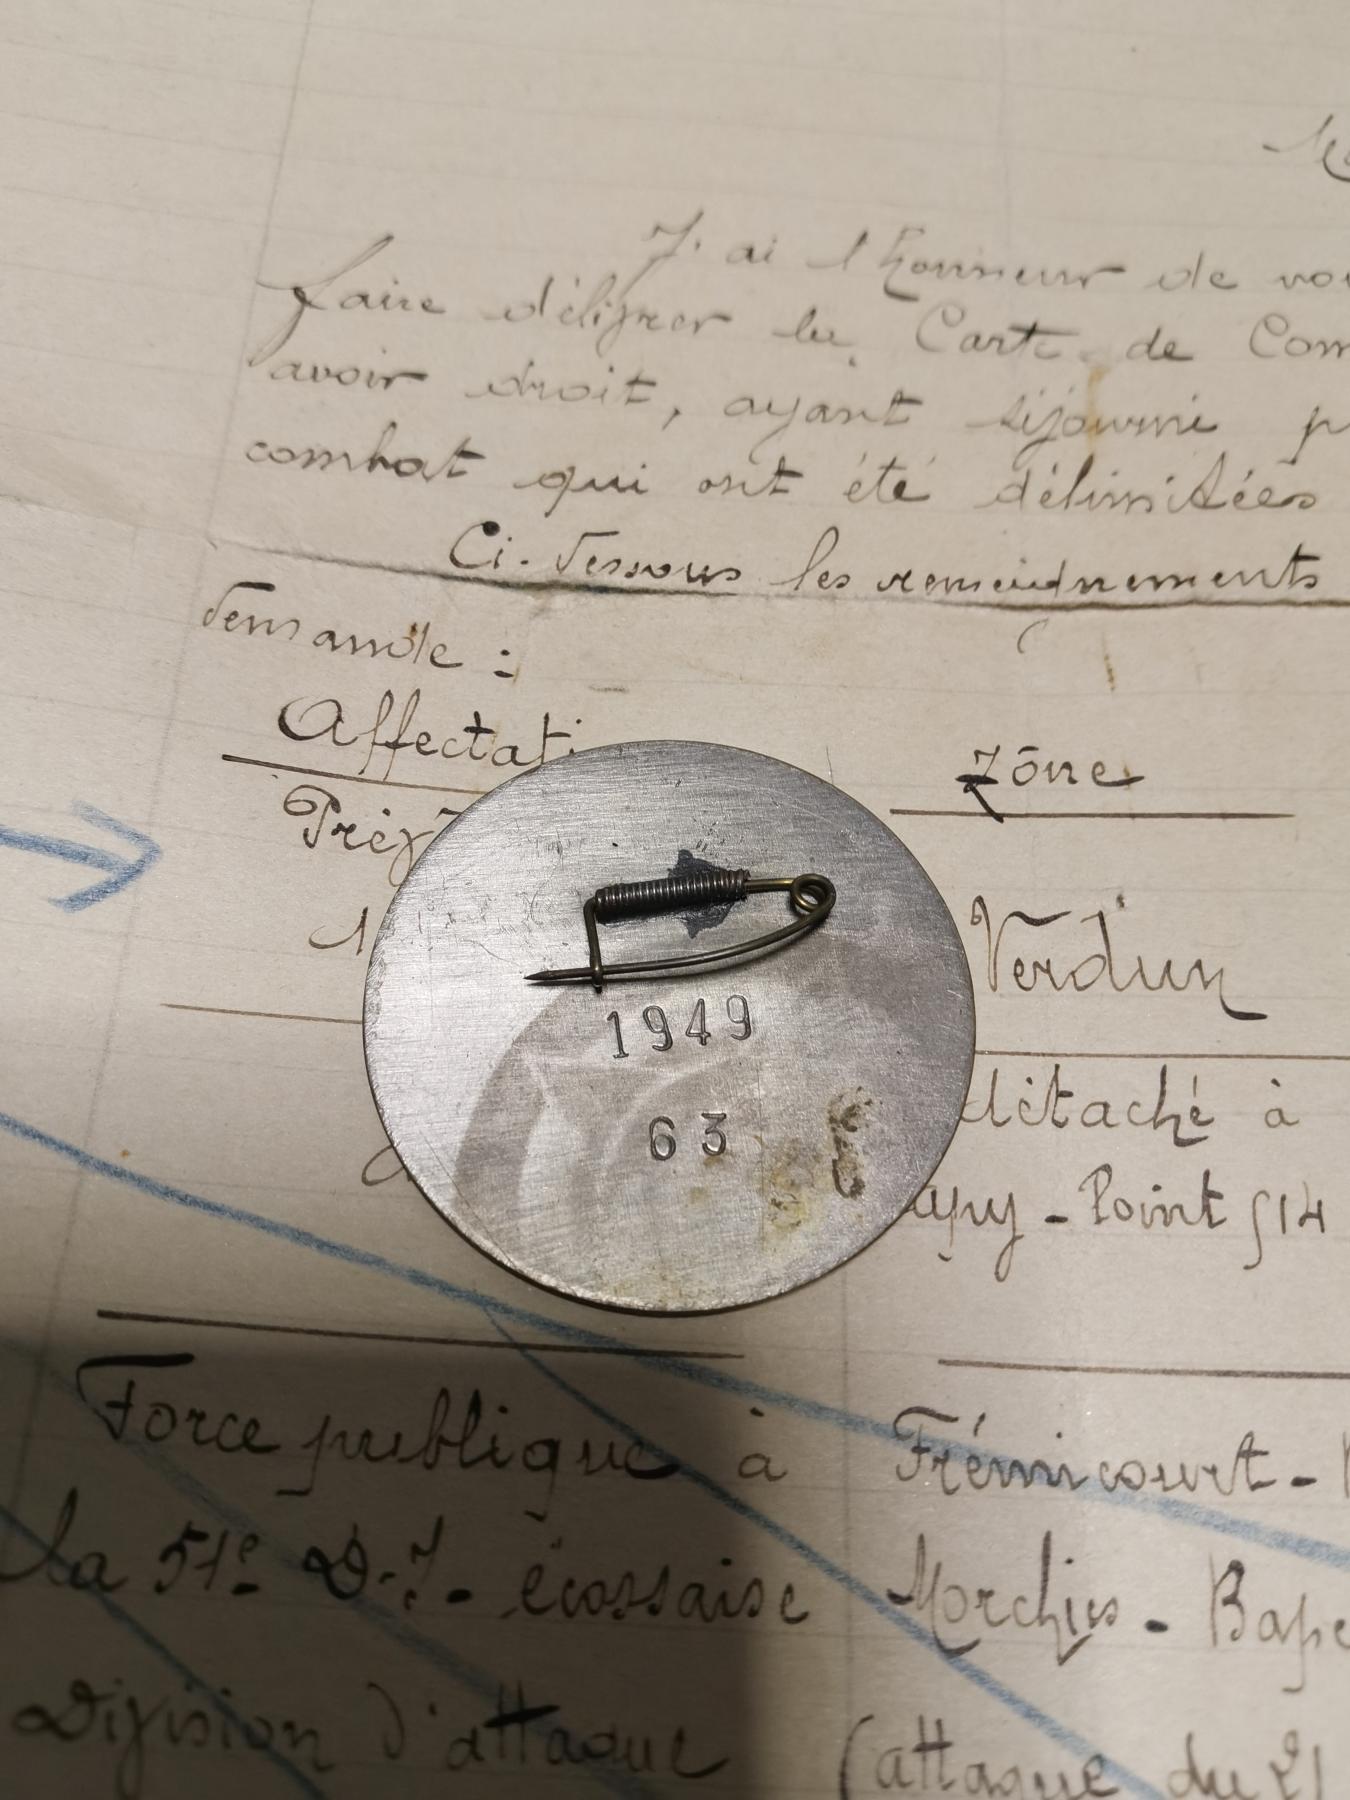 J'ai l'honneur de vou
faire délivrer la Carte de Com
avoir droit, ayant séjourné p
combat qui ont été délimitées
Ci-dessous les renseignements
demande :
Affectati
Zône
Verdun
1949
63
détaché à
apy - Point 514
Force publique à
Frémicourt -
la 51e D.I. écossaise
Morchies - Bape
Division d'attaque
(attaque du 21